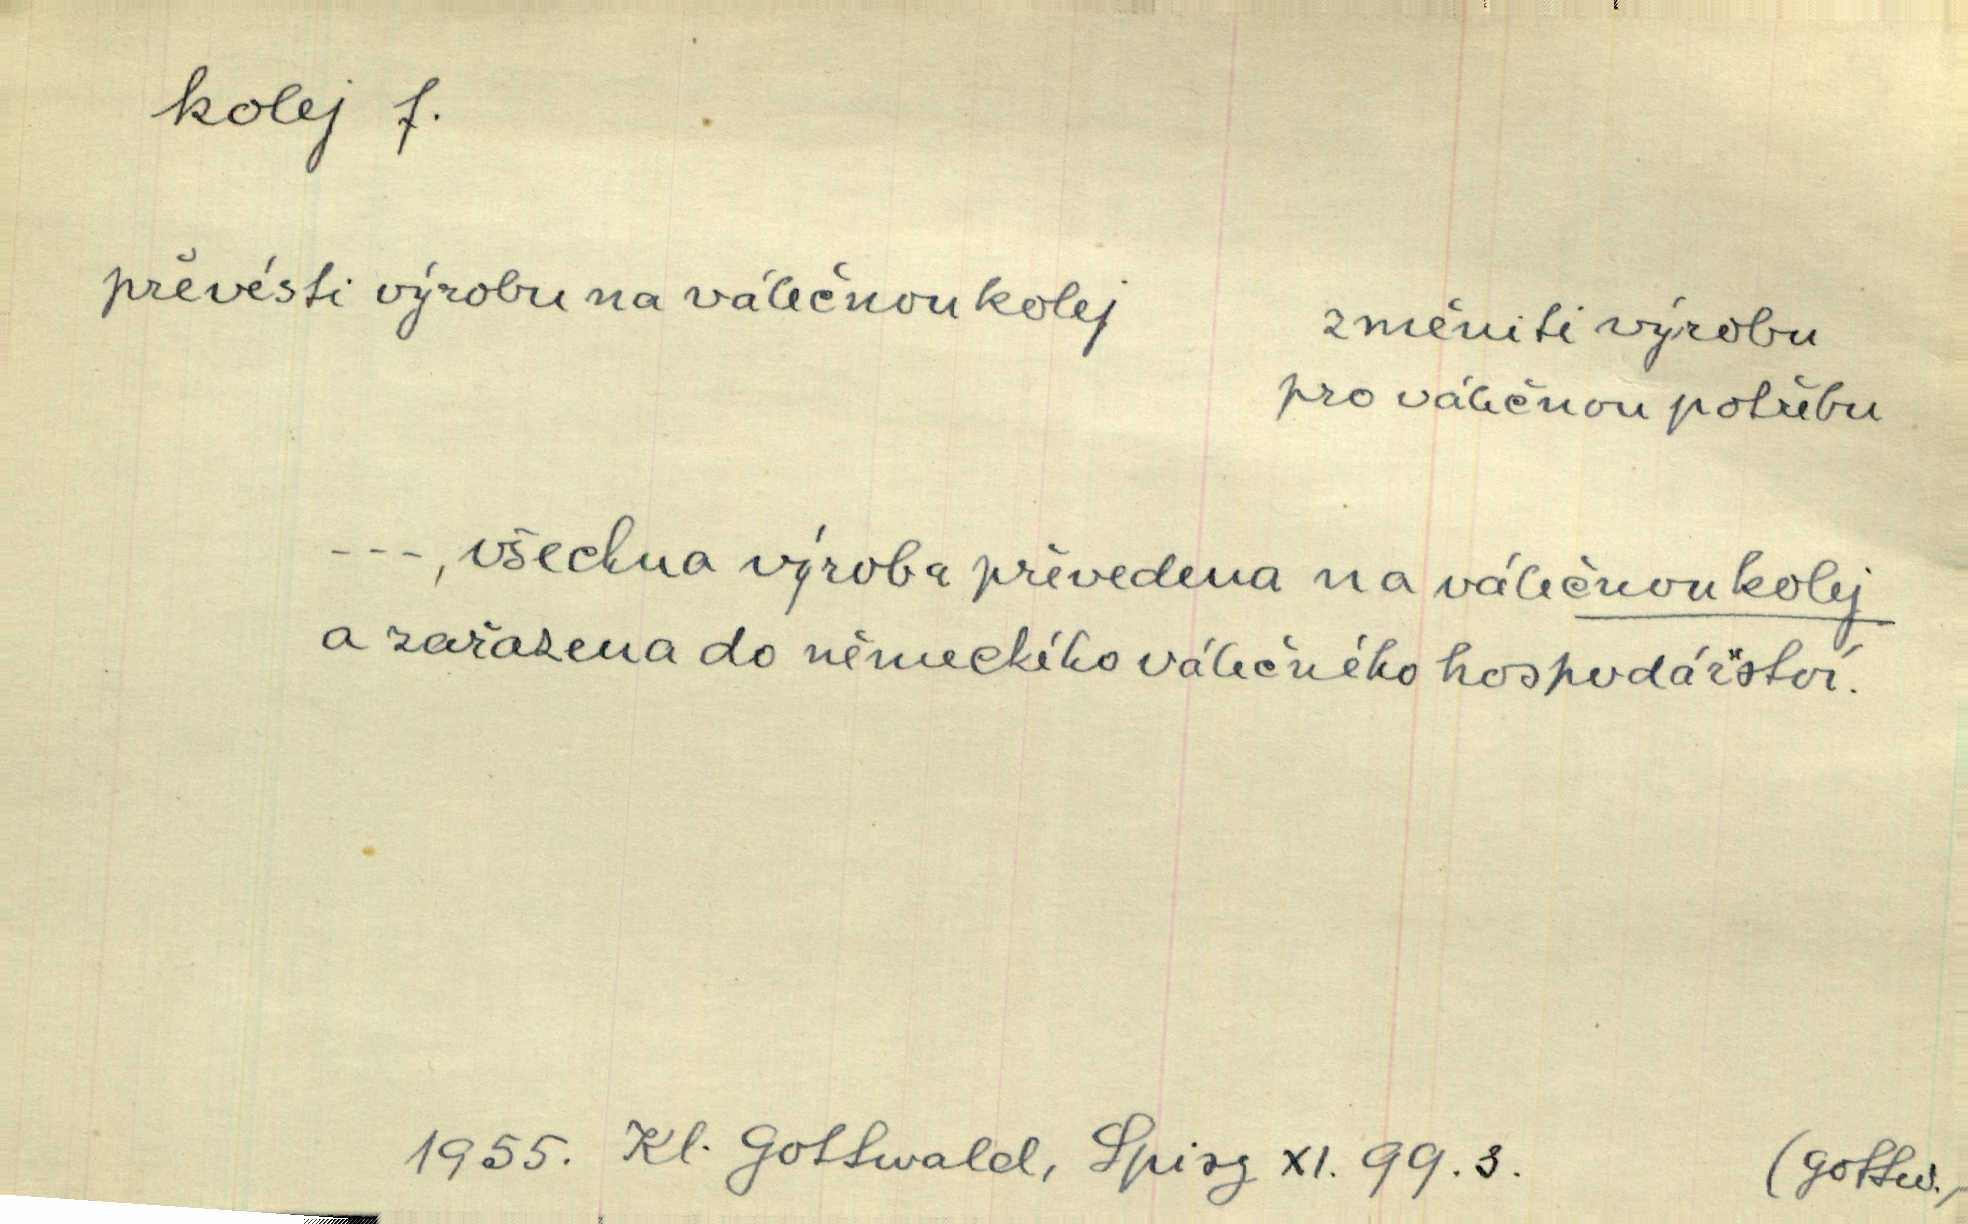 kolej f.
převésti výrobu na válečnou kolej
změniti výrobu
pro válečnou potřebu
---, všechna výroba převedena na válečnou kolej
a zařazena do německého válečného hospodářství.
1955. Kl. Gottwald, Spisy XI. 99. s. (Gottw.,